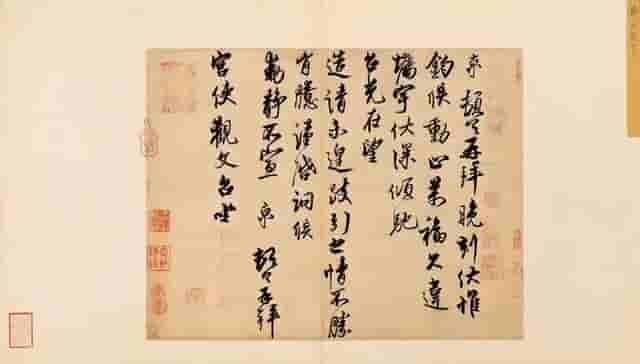 京頓首再拜晚刻伏惟
鈞候動止萬福久違
牆宇伏深傾馳
台光在望
造請未遑跂引之情不勝
有臆謹啓詞候
動靜不宣京頓首再拜
宮使觀文台坐